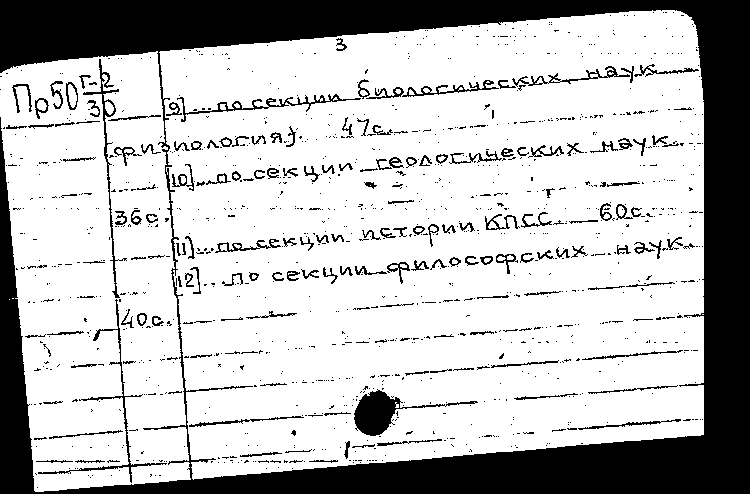 3
Пр50 Г-2/30
[9]...по секции биологических наук
(физиология). 47с.
[10]...по секции геологических наук.
36с.
[11]...по секции истории КПСС. 60с.
[12]...по секции философских наук.
40с.